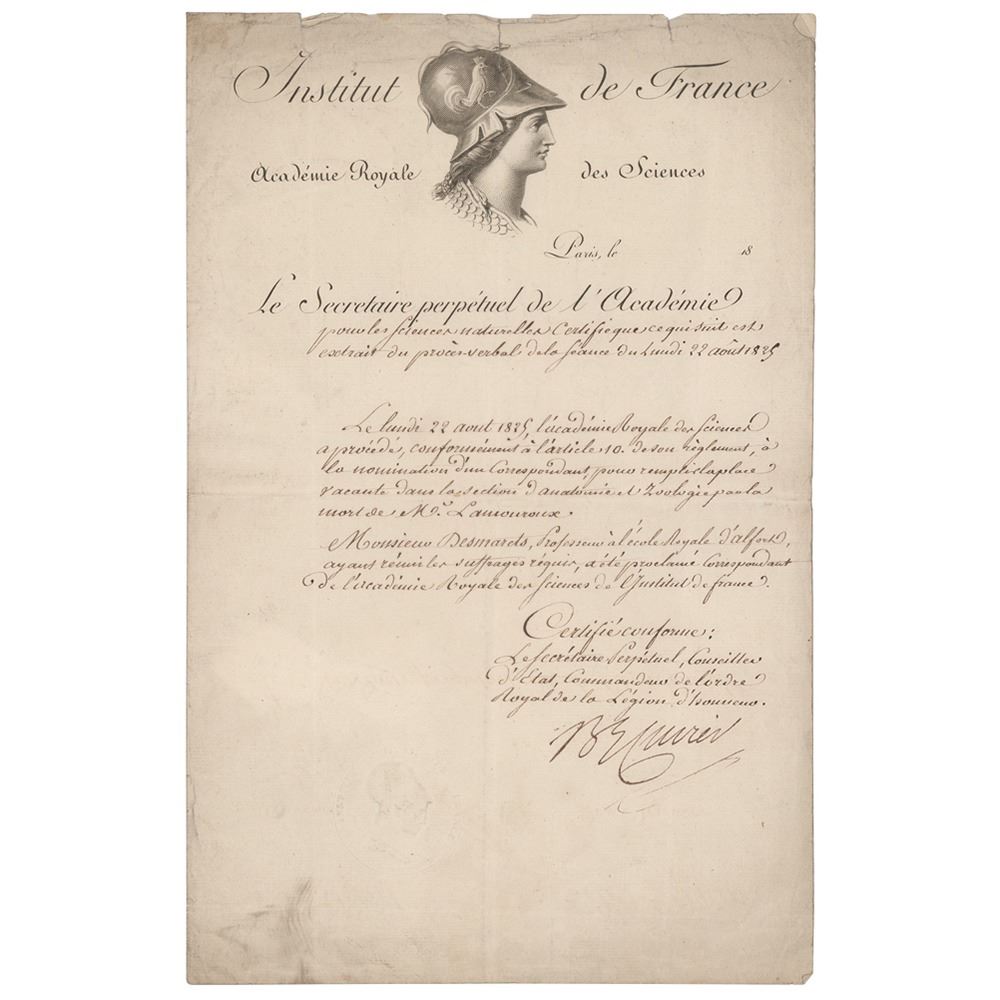 Institut de France
Académie Royale des Sciences
Paris, le 18
Le Secretaire perpétuel de l'Académie
pour les Sciences naturelles Certifie que ce qui suit est
extrait du procès-verbal de la Séance du Lundi 22 août 1825
Le lundi 22 aout 1825, l'académie Royale des Sciences
a procédé, conformément à l'article 10. de son règlement, à
la nomination d'un Correspondant, pour remplir la place
vacante dans la section d'anatomie et Zoologie par la
mort de Mr. Lamouroux.
Monsieur Desmarets, Professeur à l'école Royale d'alfort,
ayant réuni les suffrages réquis, a été proclamé Correspondant
de l'académie Royale des Sciences de l'Institut de france.
Certifié conforme:
Le Secrétaire Perpétuel, Conseiller
d'Etat, Commandeur de l'ordre
Royal de la Légion d'honneur.
Bn Cuvier